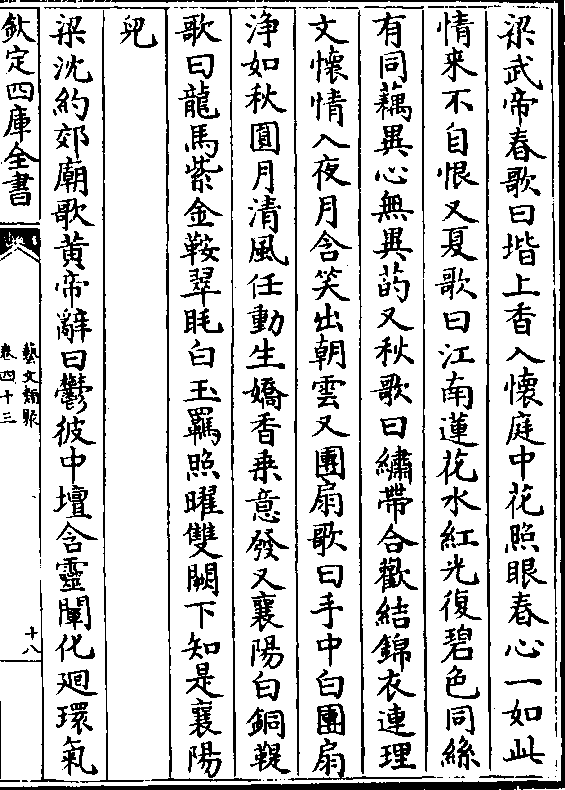 梁武帝春歌曰堦上香入懷庭中花照眼春心一如此
情来不自恨又夏歌曰江南蓮花水紅光復碧色同絲
有同藕異心無異菂又秋歌曰繡帶合歡結錦衣連理
文懷情入夜月含笑出朝雲又團扇歌曰手中白團扇
浄如秋圓月清風任動生嬌香乗意發又襄陽白銅鞮
歌曰龍馬紫金鞍翠眊白玉羈照曜雙闕下知是襄陽
兒
梁沈約郊廟歌黄帝辭曰鬱彼中壇含靈闡化廻環氣
欽定四庫全書
藝文類聚
卷四十三
十八